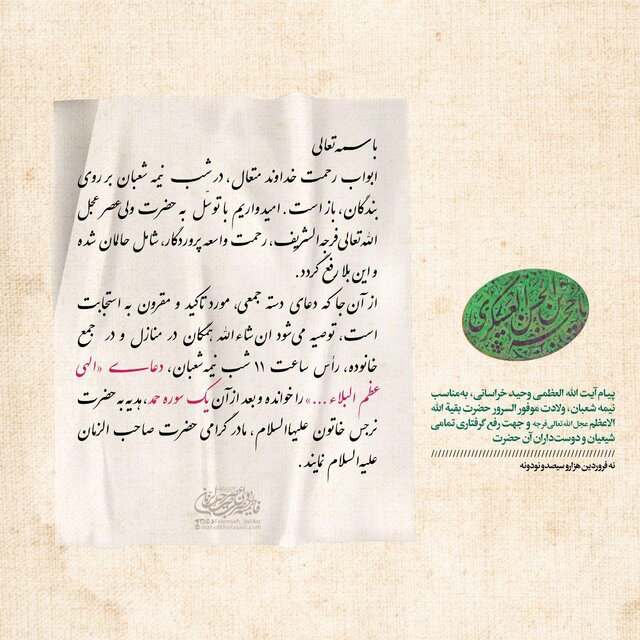 باسمه‌تعالی
ابواب رحمت خداوند متعال، در شب نیمه شعبان بر روی
بندگان، باز است. امیدواریم با توسّل به حضرت ولی‌عصر عجل
الله تعالی فرجه الشریف، رحمت واسعه پروردگار، شامل حالمان شده
و این بلا رفع گردد.
از آن جا که دعای دسته جمعی، مورد تاکید و مقرون به استجابت
است، توصیه می‌شود ان شاءالله همگان در منازل و در جمع
خانواده، رأس ساعت ۱۱ شب نیمه‌شعبان، دعاے «الهی
عظم البلاء ...» را خوانده و بعد از آن یک سوره حمد، هدیه به حضرت
نرجس خاتون علیهاالسلام، مادر گرامی حضرت صاحب الزمان
علیه‌السلام نمایند.
Fatemyeh_ValiAsr
WahidKhorasani.com
یا حجة بن الحسن العسکری
پیام آیت الله العظمی وحید خراسانی، به‌مناسب
نیمه شعبان، ولادت موفور السرور حضرت بقیة الله
الاعظم عجل الله تعالی فرجه و جهت رفع گرفتاری تمامی
شیعیان و دوست‌داران آن حضرت
نه فروردین هزار و سیصد و نود و نه